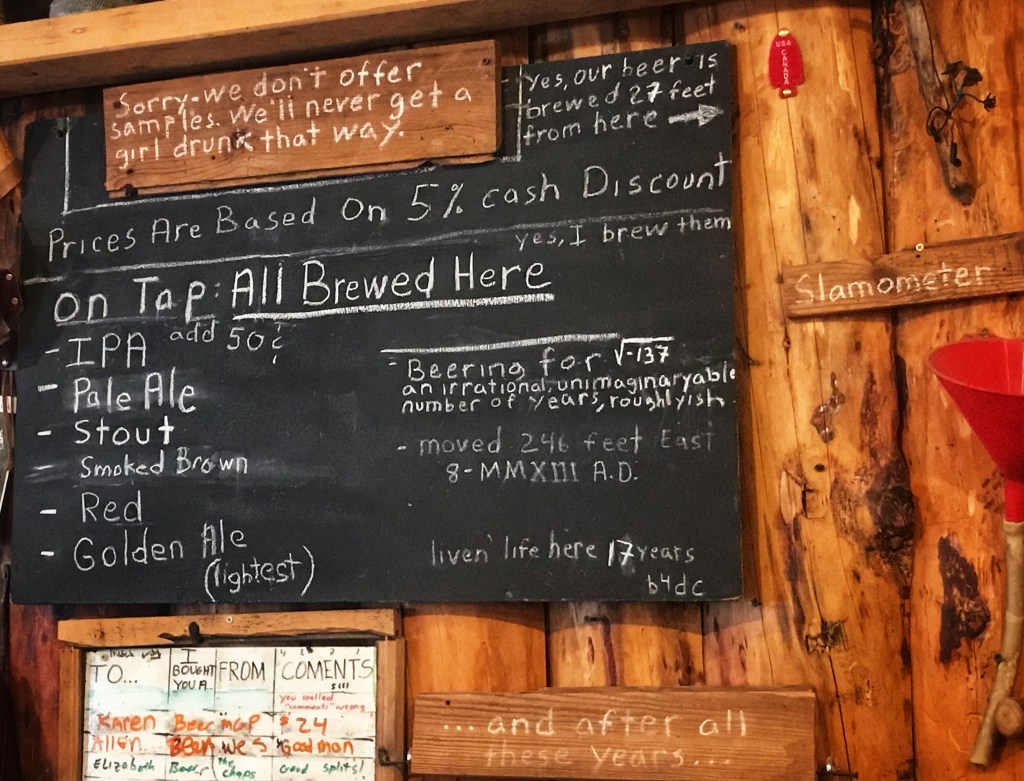 Sorry-we don't offer
samples. We'll never get a
girl drunk that way.
yes, our beer is
brewed 27 feet
from here →
USA
CANADA
Prices Are Based On 5% cash Discount
yes, I brew them
On Tap: All Brewed Here
- IPA add 50¢
- Pale Ale
- Stout
Smoked Brown
- Red
- Golden Ale
(lightest)
- Beering for √-137
an irrational, unimaginaryable
number of years, roughlyish.
- moved 246 feet East
8-MMXIII A.D.
liven' life here 17 years
b4dc
Slamometer
TO... I BOUGHT YOU A FROM COMENTS
you spelled
"comments" wrong
Karen Beer MGP $24
Allen Beer we s Good man
Elizabeth Beer The chaps Good splits!
...and after all
these years...